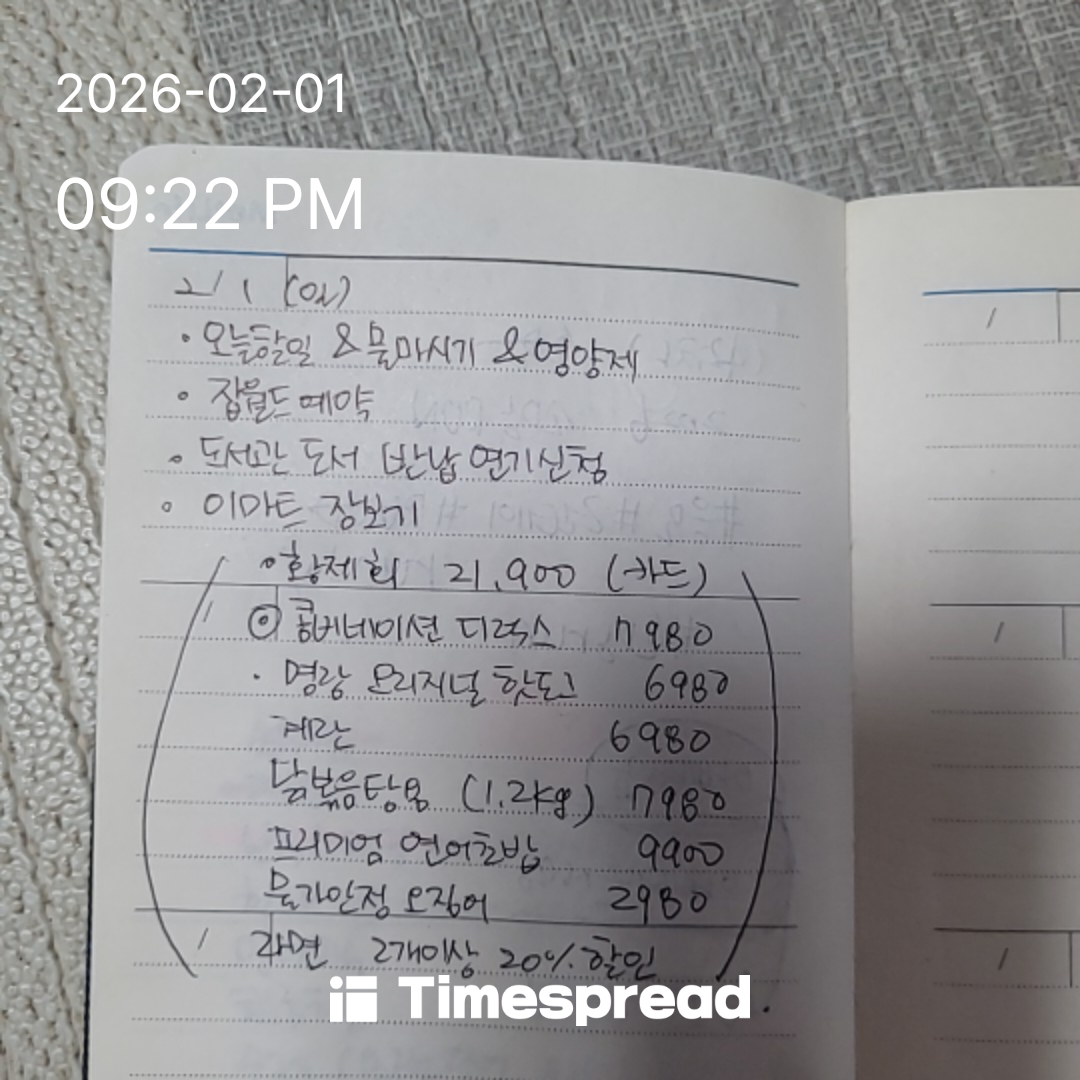 2026-02-01
09:22 PM
2/1 (일)
• 오늘할일 & 물마시기 & 영양제
• 잡월드 예약
• 도서관 도서 반납 연기신청
• 이마트 장보기
• 황제회 21,900 (카드)
◎ 콤비네이션 디럭스 7980
• 명랑 오리지널 핫도그 6980
계란 6980
닭볶음탕용 (1.2kg) 7980
프리미엄 연어초밥 9900
물가안정 오징어 2980
라면 2개이상 20% 할인
Timespread